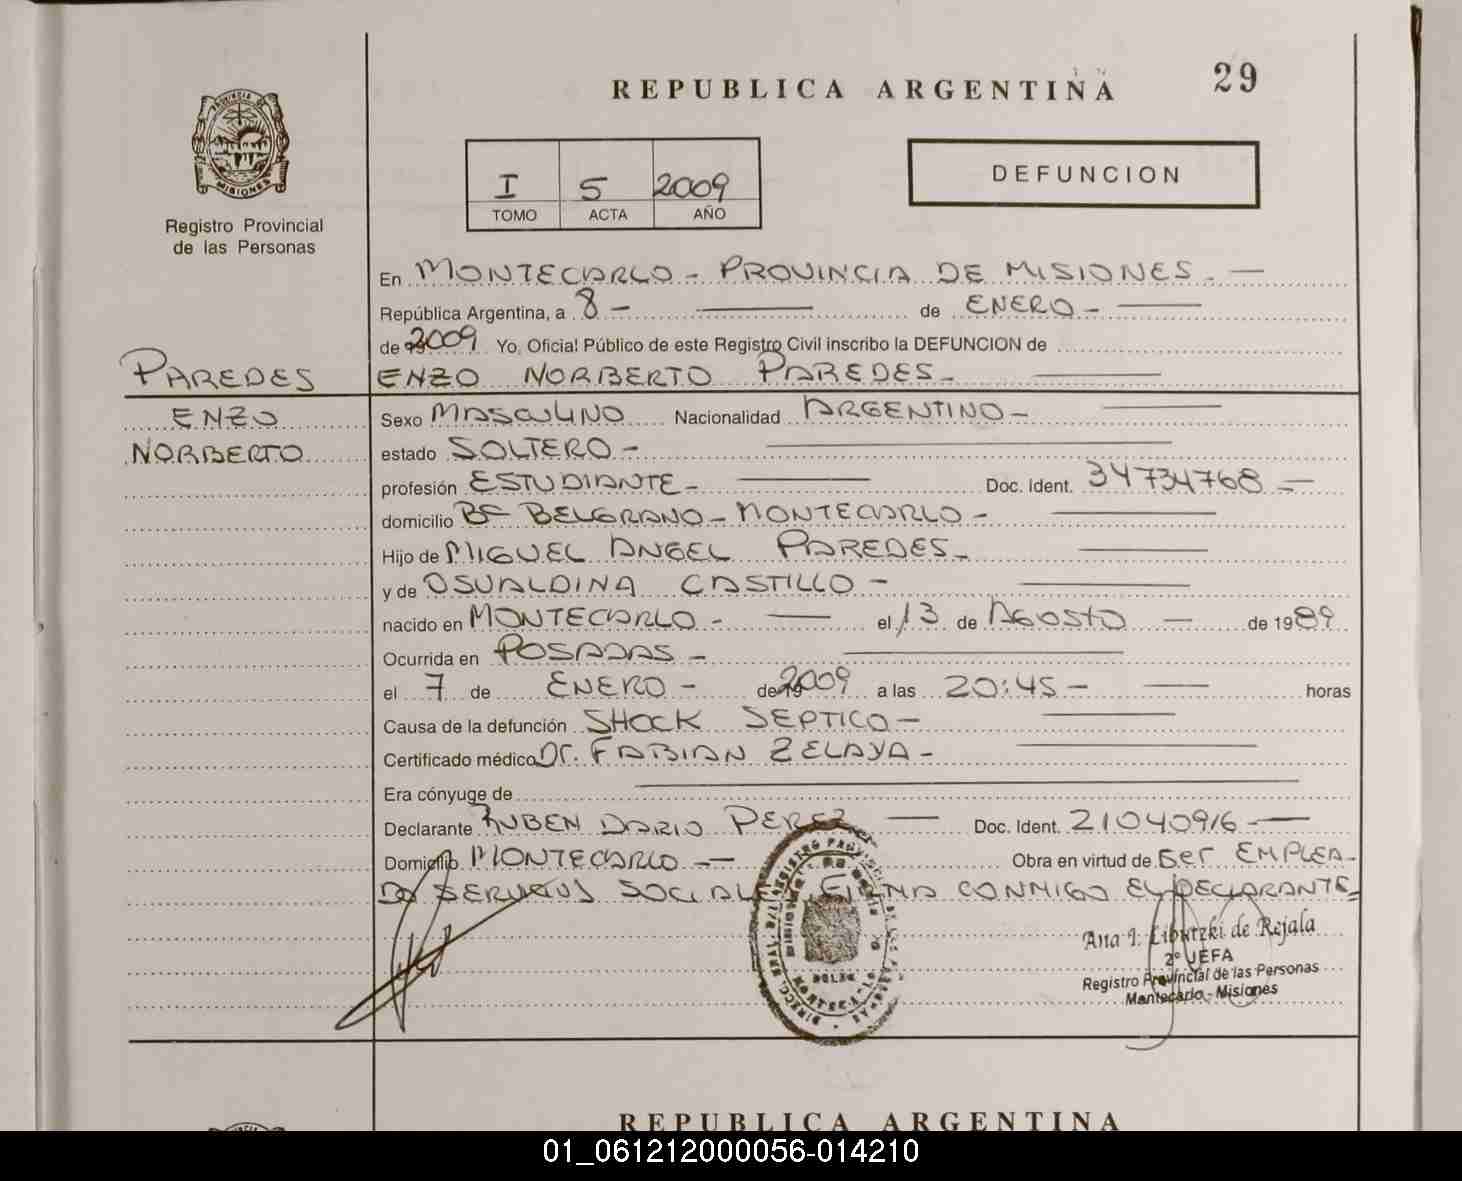 29
REPUBLICA ARGENTINA
PROVINCIA DE MISIONES
Registro Provincial
de las Personas
I 5 2009
TOMO ACTA AÑO
DEFUNCION
En MONTECARLO - PROVINCIA DE MISIONES. —
República Argentina, a 8 - — de ENERO - —
de 2009 Yo, Oficial Público de este Registro Civil inscribo la DEFUNCION de
PAREDES ENZO NORBERTO PAREDES - —
ENZO Sexo MASCULINO Nacionalidad ARGENTINO - —
NORBERTO estado SOLTERO - —
profesión ESTUDIANTE - — Doc. Ident. 34734768 —
domicilio Bº BELGRANO - MONTECARLO - —
Hijo de MIGUEL ANGEL PAREDES - —
y de OSVALDINA CASTILLO - —
nacido en MONTECARLO - — el 13 de AGOSTO — de 1989
Ocurrida en POSADAS - —
el 7 de ENERO - de 2009 a las 20:45 - — horas
Causa de la defunción SHOCK SEPTICO - —
Certificado médico Dr. FABIAN ZELAYA - —
Era cónyuge de —
Declarante RUBEN DARIO PEREZ — Doc. Ident. 21040916 —
Domicilio MONTECARLO - Obra en virtud de Ser EMPLEA-
DO SERVICIOS SOCIAL FIRMA CONMIGO EL DECLARANTE
Ana I. Liburzki de Rejala
2º JEFA
Registro Provincial de las Personas
Montecarlo - Misiones
REPUBLICA ARGENTINA
01_061212000056-014210